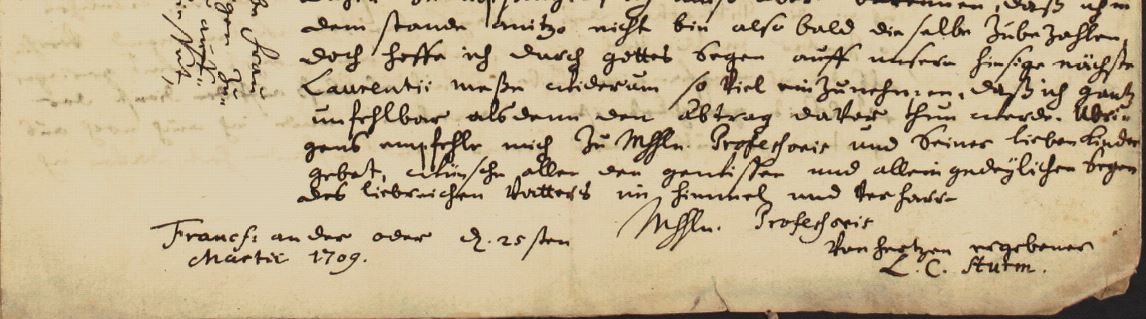 dem stande anitzo nicht bin also bald dieselbe Zubezahlen,
doch hoffe ich durch gottes Segen auff unsern hiesige nächste
Laurentii meße wiederum so viel einzunehmen, daß ich gantz
unfehlbar alsdenn den Abtrag davor thun werde. Ubri-
gens empfehle mich Zu Mhhln. Professoris und seiner lieben Kinder
gebet, wünsche allen den gewissen und allein gedeylichen Segen
des liebreichen Vatters im himmel und verharre
Mhhln. Professoris
Francf: an der oder d. 25sten
Martii 1709.
Von hertzen ergebener
L. C. Sturm.